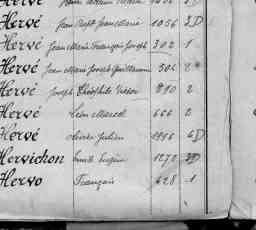 Hervé Jean Bapt Jean Marie 1056 3D
Hervé Jean Marie François Joseph 302 1
Hervé Jean Marie Joseph Guillaume 506 2
Hervé Joseph Théophile Victor 810 2
Hervé Léon Marcel 666 2
Hervé Olivier Julien 1996 6D
Hervichon Emile Eugène 1272 3D
Hervo François 628 1